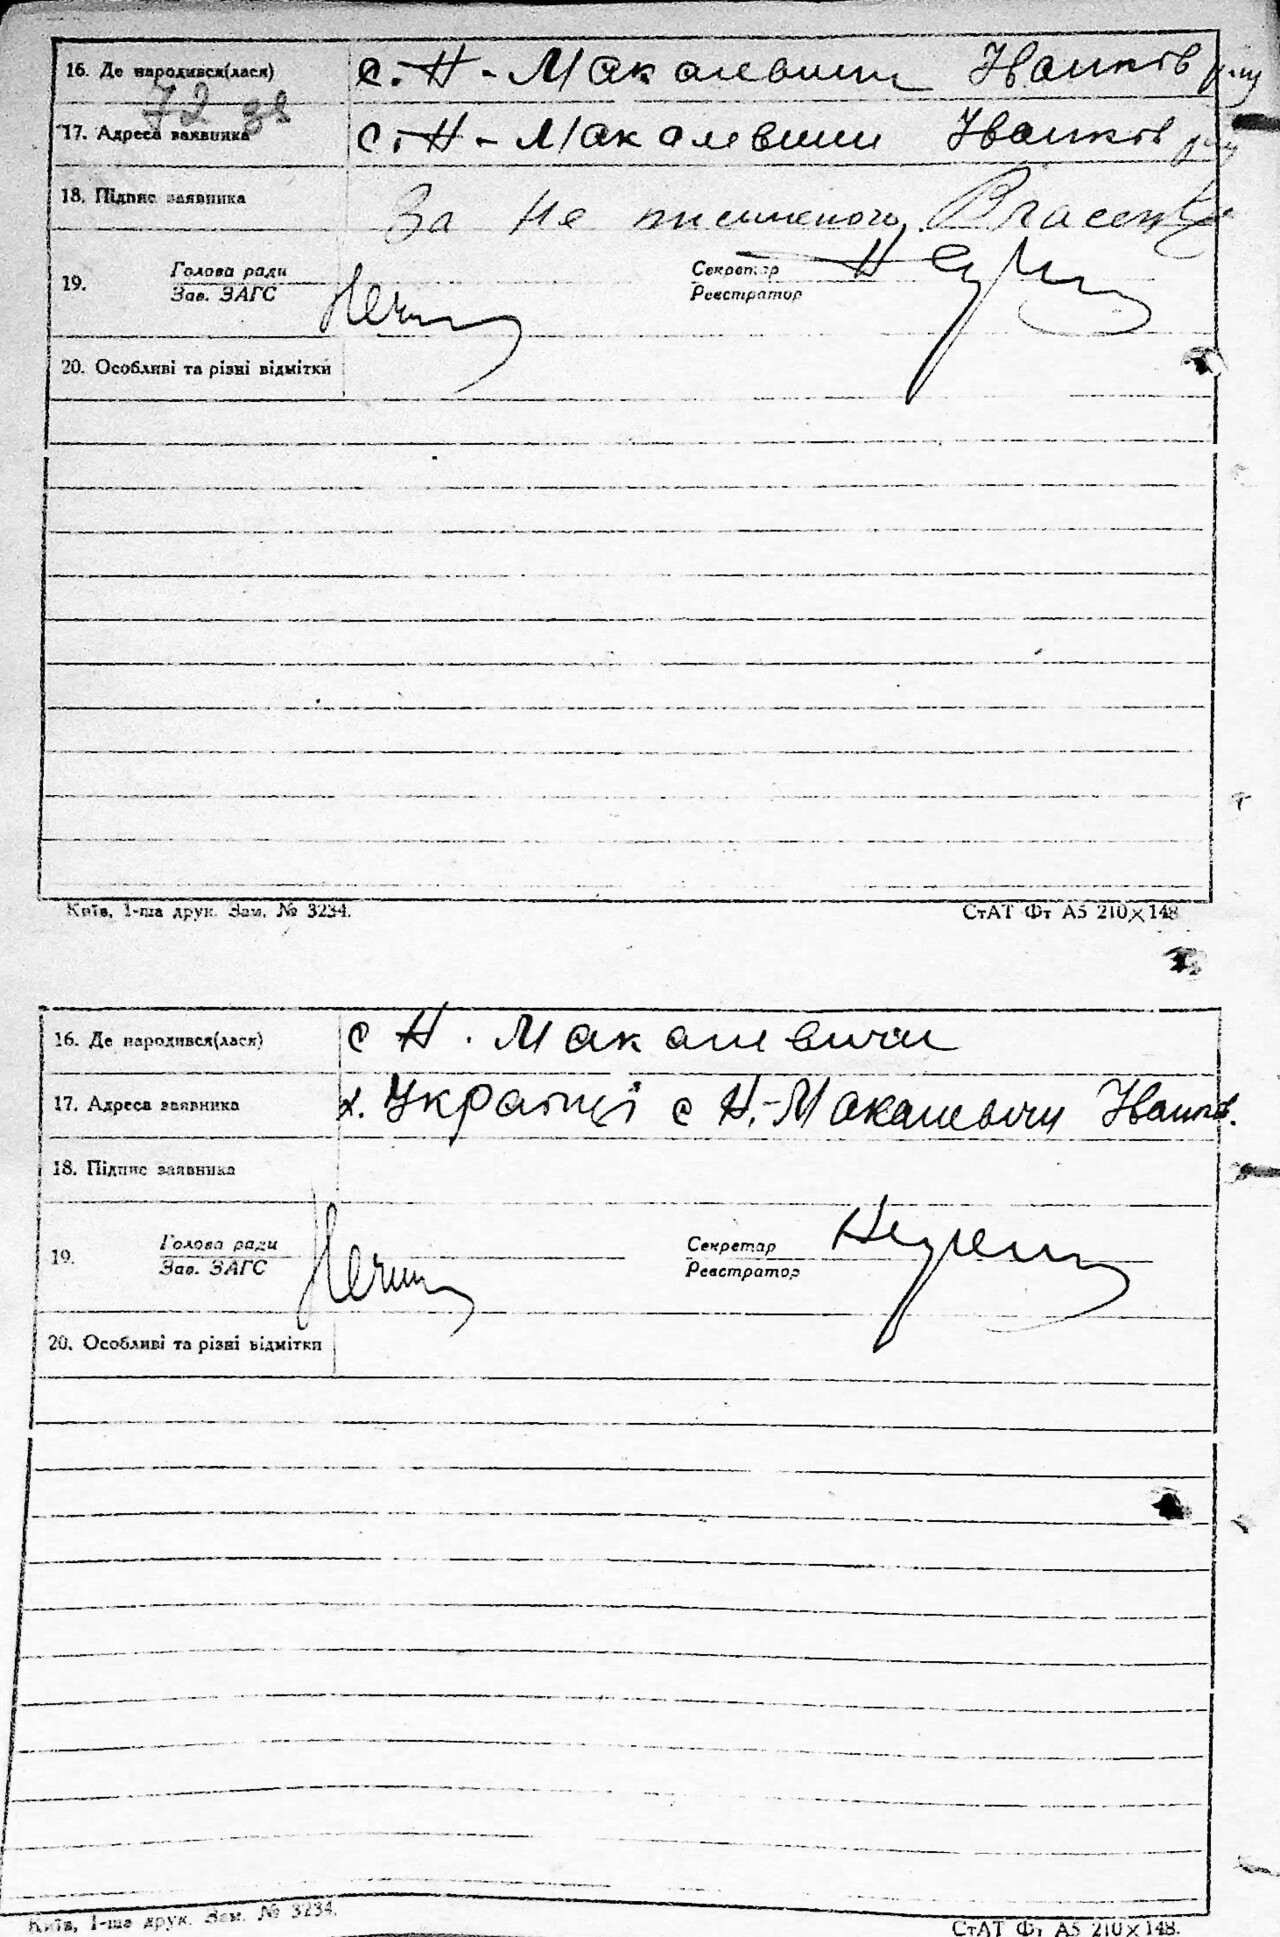 16. Де народився(лася) с. Н - Макалевичи Іванків р-ну
72 зв
17. Адреса заявника с. Н - Макалевичи Іванків р-ну
18. Підпис заявника За не писменого Власенко
19. Голова ради Секретар
Зав. ЗАГС Реєстратор
20. Особливі та різні відмітки
Київ, 1-ша друк. Зам. № 3234. СтАТ Фт А5 210×148
16. Де народився(лася) с Н. Макалевичи
17. Адреса заявника х. Українці с Н.-Макалевичи Іванків.
18. Підпис заявника
19. Голова ради Секретар
Зав. ЗАГС Реєстратор
20. Особливі та різні відмітки
Київ, 1-ша друк. Зам. № 3234. СтАТ Фт А5 210×148.